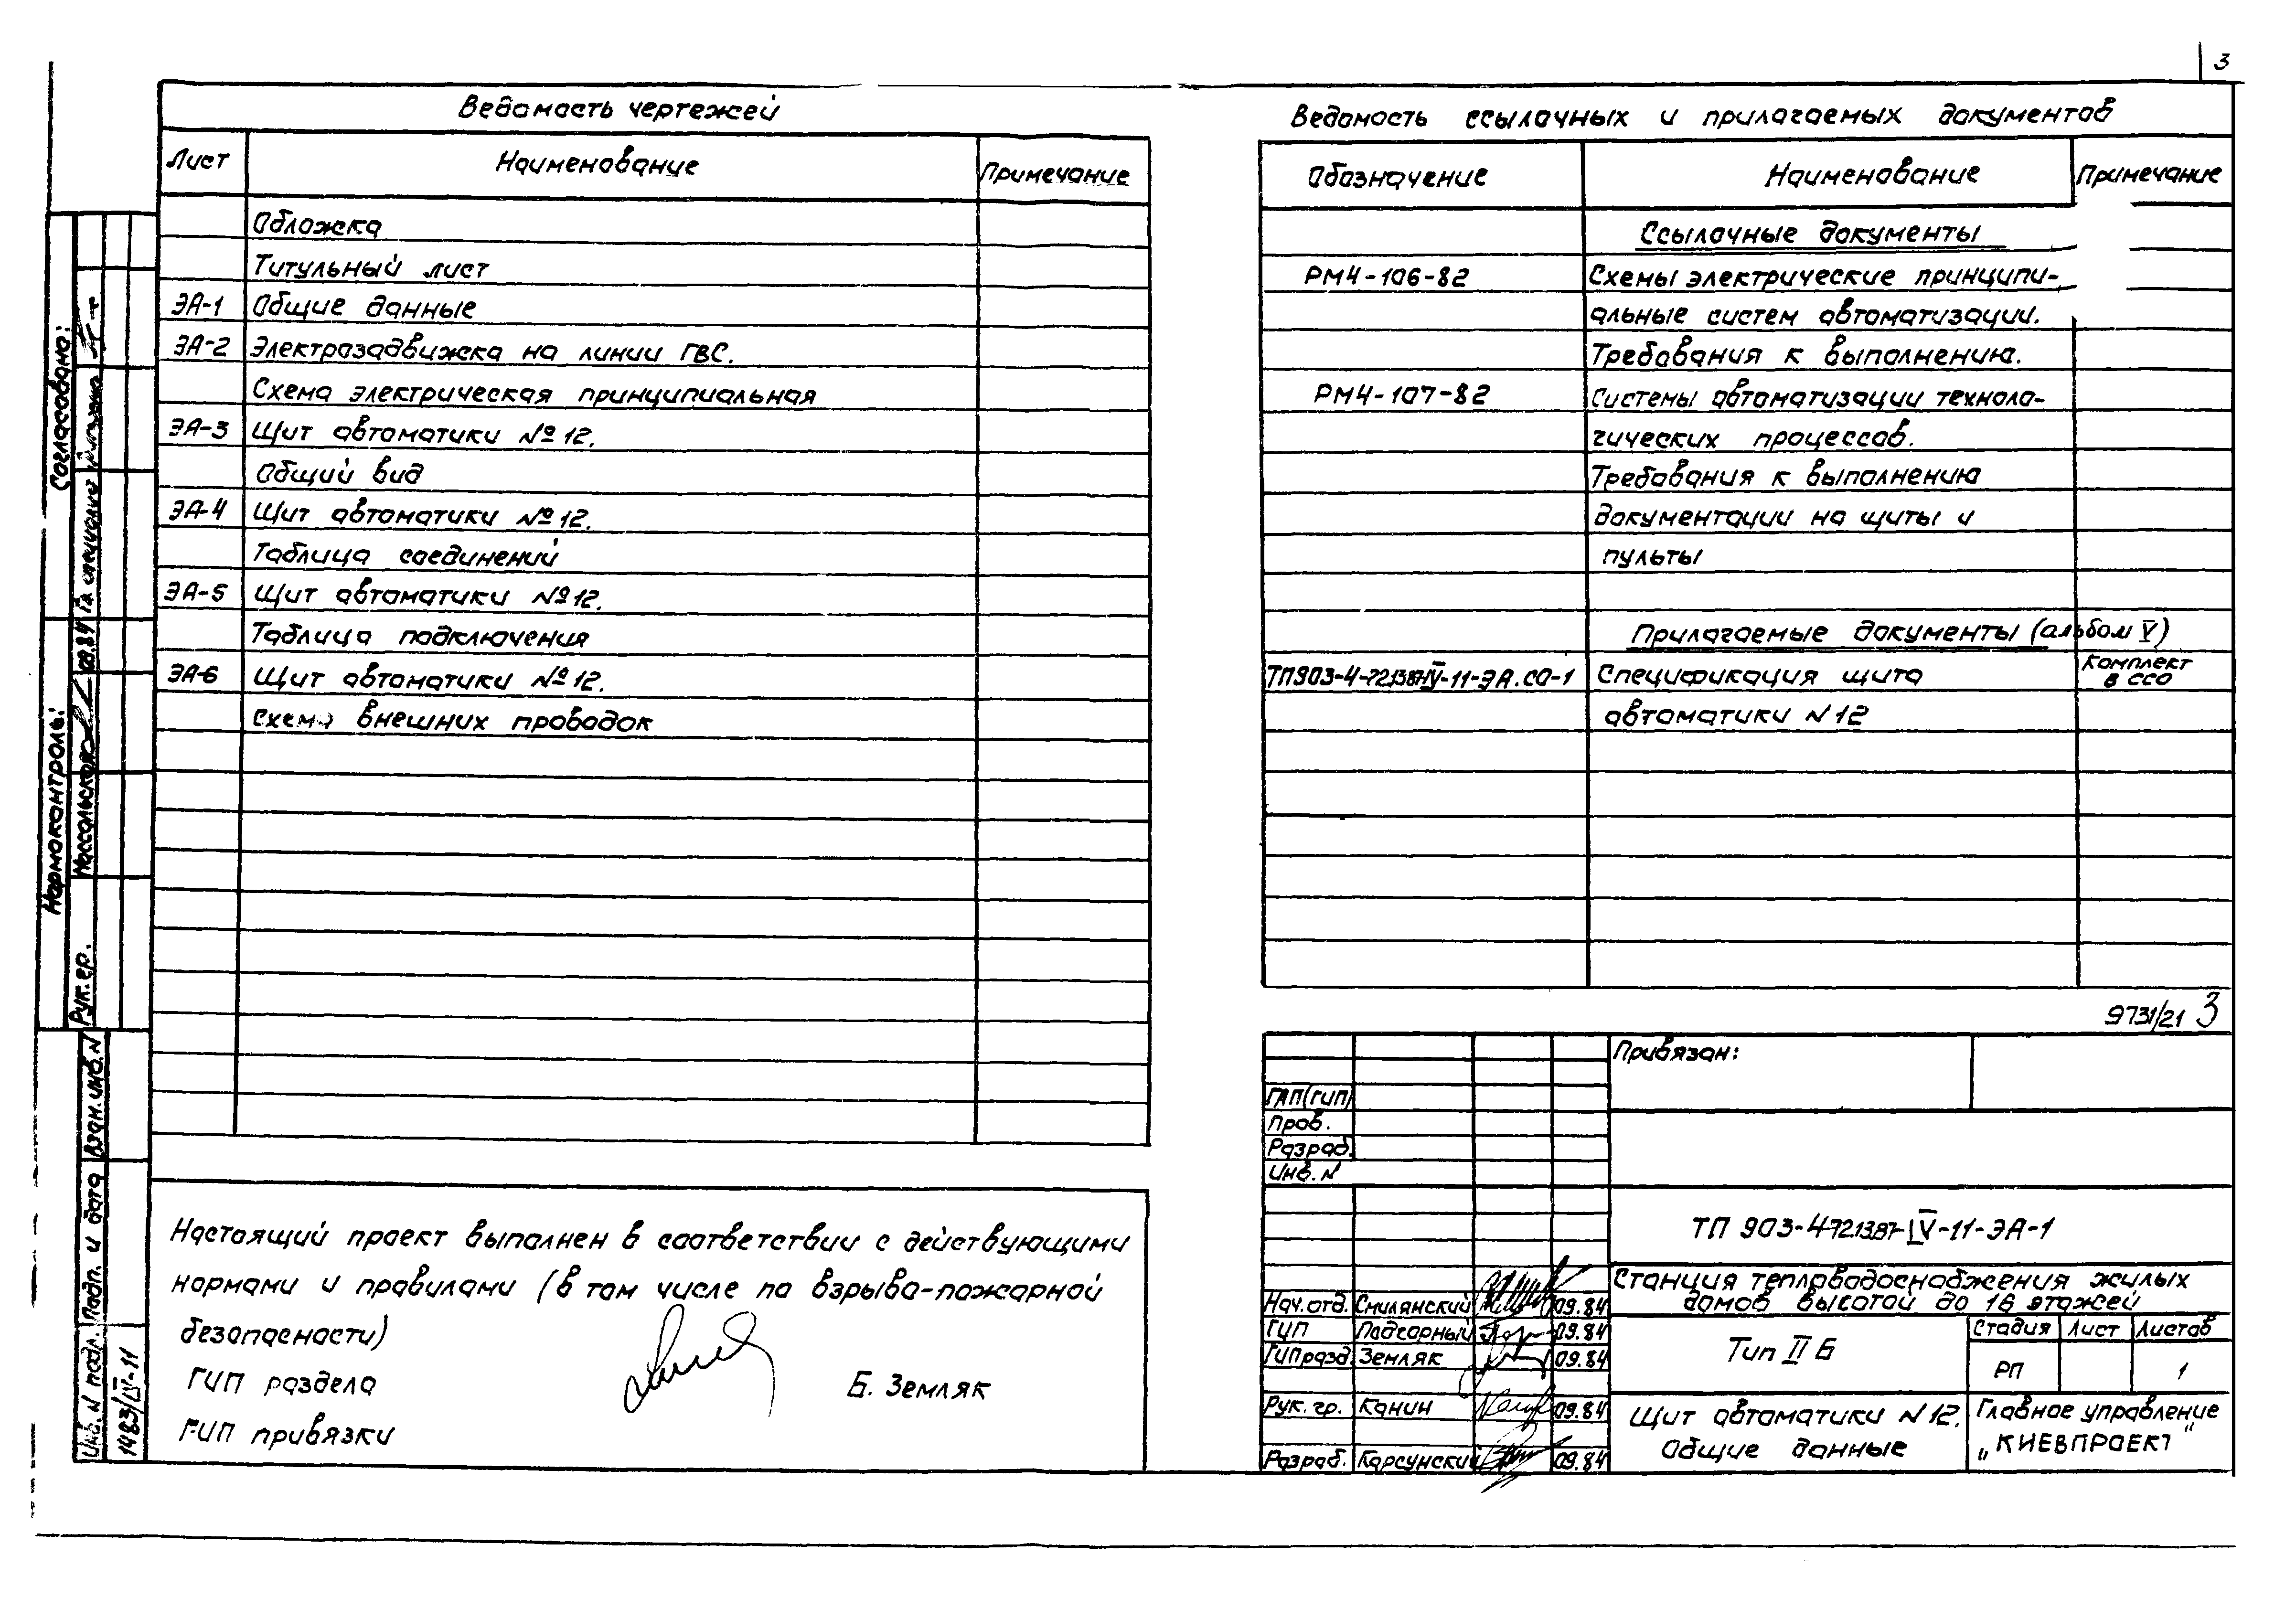 3
Ведомость чертежей
Лист Наименование Примечание
Обложка
Титульный лист
ЭА-1 Общие данные
ЭА-2 Электрозадвижка на линии ГВС.
Схема электрическая принципиальная
ЭА-3 Щит автоматики №12.
Общий вид
ЭА-4 Щит автоматики №12.
Таблица соединений
ЭА-5 Щит автоматики №12.
Таблица подключения
ЭА-6 Щит автоматики №12.
Схема внешних проводок
Настоящий проект выполнен в соответствии с действующими
нормами и правилами (в том числе по взрыво-пожарной
безопасности)
ГИП раздела Б. Земляк
ГИП привязки
Ведомость ссылочных и прилагаемых документов
Обозначение Наименование Примечание
Ссылочные документы
РМ4-106-82 Схемы электрические принципи-
альные систем автоматизации.
Требования к выполнению.
РМ4-107-82 Системы автоматизации техноло-
гических процессов.
Требования к выполнению
документации на щиты и
пульты
Прилагаемые документы (альбом V)
ТП903-4-72.13.87-IV-11-ЭА.СО-1 Спецификация щита Комплект
в ССО
автоматики N12
9731/21 3
Привязан:
ГАП(ГИП)
Пров.
Разраб.
Инв. N
ТП 903-4-72.13.87-IV-11-ЭА-1
Станция тепловодоснабжения жилых
домов высотой до 16 этажей
Нач.отд. Смилянский 09.84
ГИП Подгорный 09.84
ГИПразд. Земляк 09.84
Рук. гр. Канин 09.84
Разраб. Карсунский 09.84
Тип II Б
Стадия Лист Листов
РП 1
Щит автоматики N12.
Общие данные
Главное управление
„КИЕВПРОЕКТ"
Согласовано:
Гл. специалист
Нормоконтроль:
Рук. гр. 09.84
Взан. инв. N
Подп. и дата
Инв. N подл.
1483/IV-11